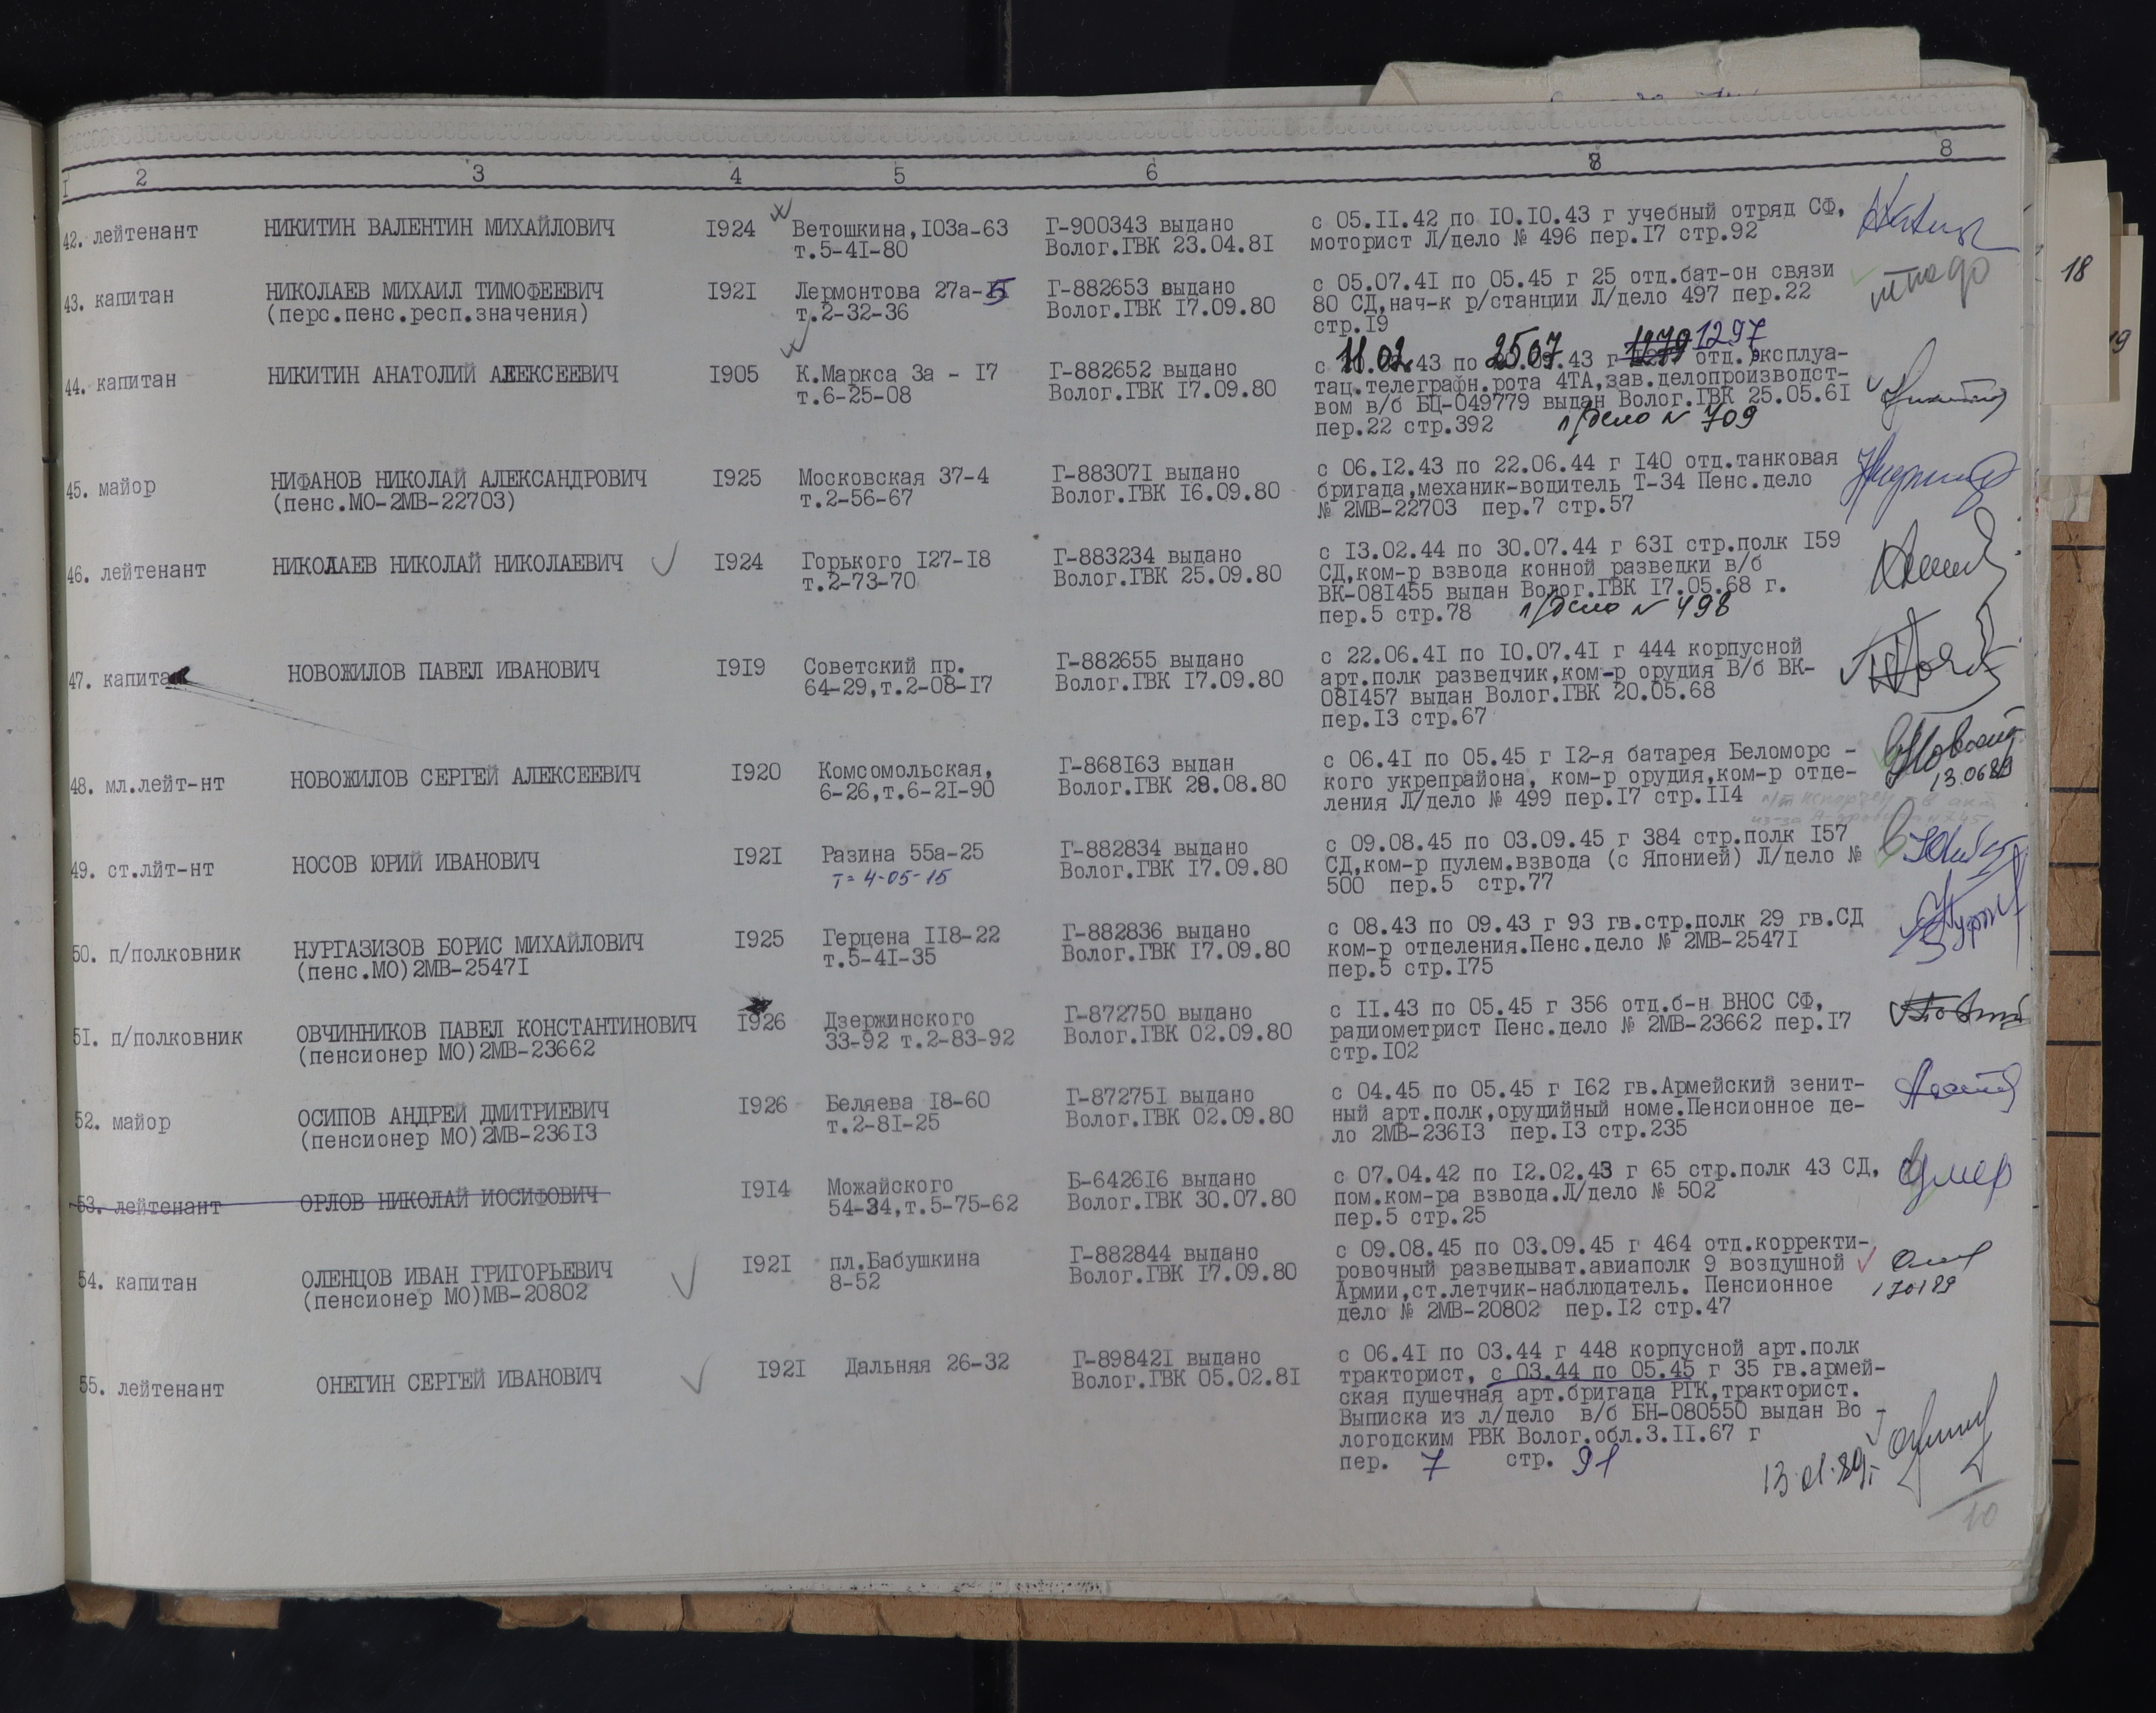 I 2 3 4 5 6 8 8
42. лейтенант НИКИТИН ВАЛЕНТИН МИХАЙЛОВИЧ I924 Ветошкина,I03а-63 Г-900343 выдано с 05.II.42 по I0.I0.43 г учебный отряд СФ,
т.5-4I-80 Волог.ГВК 23.04.8I моторист Л/дело № 496 пер.I7 стр.92
43. капитан НИКОЛАЕВ МИХАИЛ ТИМОФЕЕВИЧ I92I Лермонтова 27а-5 Г-882653 выдано с 05.07.4I по 05.45 г 25 отд.бат-он связи
(перс.пенс.респ.значения) т.2-32-36 Волог.ГВК I7.09.80 80 СД,нач-к р/станции Л/дело 497 пер.22
стр.I9
44. капитан НИКИТИН АНАТОЛИЙ АЛЕКСЕЕВИЧ I905 К.Маркса 3а - I7 Г-882652 выдано с 11.02.43 по 25.07.43 г 1297 отд.эксплуа-
т.6-25-08 Волог.ГВК I7.09.80 тац.телеграфн.рота 4ТА,зав.делопроизводст-
вом в/б БЦ-049779 выдан Волог.ГВК 25.05.6I
пер.22 стр.392 л/дело № 709
45. майор НИФАНОВ НИКОЛАЙ АЛЕКСАНДРОВИЧ I925 Московская 37-4 Г-88307I выдано с 06.I2.43 по 22.06.44 г I40 отд.танковая
(пенс.МО-2МВ-22703) т.2-56-67 Волог.ГВК I6.09.80 бригада,механик-водитель Т-34 Пенс.дело
№ 2МВ-22703 пер.7 стр.57
46. лейтенант НИКОЛАЕВ НИКОЛАЙ НИКОЛАЕВИЧ I924 Горького I27-I8 Г-883234 выдано с I3.02.44 по 30.07.44 г 63I стр.полк I59
т.2-73-70 Волог.ГВК 25.09.80 СД,ком-р взвода конной разведки в/б
ВК-08I455 выдан Волог.ГВК I7.05.68 г.
пер.5 стр.78 л/дело № 498
47. капитан НОВОЖИЛОВ ПАВЕЛ ИВАНОВИЧ I9I9 Советский пр. Г-882655 выдано с 22.06.4I по I0.07.4I г 444 корпусной
64-29,т.2-08-I7 Волог.ГВК I7.09.80 арт.полк разведчик,ком-р орудия В/б ВК-
08I457 выдан Волог.ГВК 20.05.68
пер.I3 стр.67
48. мл.лейт-нт НОВОЖИЛОВ СЕРГЕЙ АЛЕКСЕЕВИЧ I920 Комсомольская, Г-868I63 выдан с 06.4I по 05.45 г I2-я батарея Беломорс -
6-26,т.6-2I-90 Волог.ГВК 28.08.80 кого укрепрайона, ком-р орудия,ком-р отде- 13.0689
ления Л/дело № 499 пер.I7 стр.II4
49. ст.лйт-нт НОСОВ ЮРИЙ ИВАНОВИЧ I92I Разина 55а-25 Г-882834 выдано с 09.08.45 по 03.09.45 г 384 стр.полк I57
т= 4-05-15 Волог.ГВК I7.09.80 СД,ком-р пулем.взвода (с Японией) Л/дело №
500 пер.5 стр.77
50. п/полковник НУРГАЗИЗОВ БОРИС МИХАЙЛОВИЧ I925 Герцена II8-22 Г-882836 выдано с 08.43 по 09.43 г 93 гв.стр.полк 29 гв.СД
(пенс.МО)2МВ-2547I т.5-4I-35 Волог.ГВК I7.09.80 ком-р отделения.Пенс.дело № 2МВ-2547I
пер.5 стр.I75
5I. п/полковник ОВЧИННИКОВ ПАВЕЛ КОНСТАНТИНОВИЧ I926 Дзержинского Г-872750 выдано с II.43 по 05.45 г 356 отд.б-н ВНОС СФ,
(пенсионер МО)2МВ-23662 33-92 т.2-83-92 Волог.ГВК 02.09.80 радиометрист Пенс.дело № 2МВ-23662 пер.I7
стр.I02
52. майор ОСИПОВ АНДРЕЙ ДМИТРИЕВИЧ I926 Беляева I8-60 Г-87275I выдано с 04.45 по 05.45 г I62 гв.Армейский зенит-
(пенсионер МО)2МВ-236I3 т.2-8I-25 Волог.ГВК 02.09.80 ный арт.полк,орудийный номе.Пенсионное де-
ло 2МВ-236I3 пер.I3 стр.235
53. лейтенант ОРЛОВ НИКОЛАЙ ИОСИФОВИЧ I9I4 Можайского Б-6426I6 выдано с 07.04.42 по I2.02.43 г 65 стр.полк 43 СД, умер
54-34,т.5-75-62 Волог.ГВК 30.07.80 пом.ком-ра взвода.Л/дело № 502
пер.5 стр.25
54. капитан ОЛЕНЦОВ ИВАН ГРИГОРЬЕВИЧ I92I пл.Бабушкина Г-882844 выдано с 09.08.45 по 03.09.45 г 464 отд.корректи-
(пенсионер МО)МВ-20802 8-52 Волог.ГВК I7.09.80 ровочный разведыват.авиаполк 9 воздушной
Армии,ст.летчик-наблюдатель. Пенсионное 170189
дело № 2МВ-20802 пер.I2 стр.47
55. лейтенант ОНЕГИН СЕРГЕЙ ИВАНОВИЧ I92I Дальняя 26-32 Г-89842I выдано с 06.4I по 03.44 г 448 корпусной арт.полк
Волог.ГВК 05.02.8I тракторист, с 03.44 по 05.45 г 35 гв.армей-
ская пушечная арт.бригада РГК,тракторист.
Выписка из л/дело в/б БН-080550 выдан Во -
логодским РВК Волог.обл.3.II.67 г
пер. 7 стр. 91 13.01.89г.
10
18
19